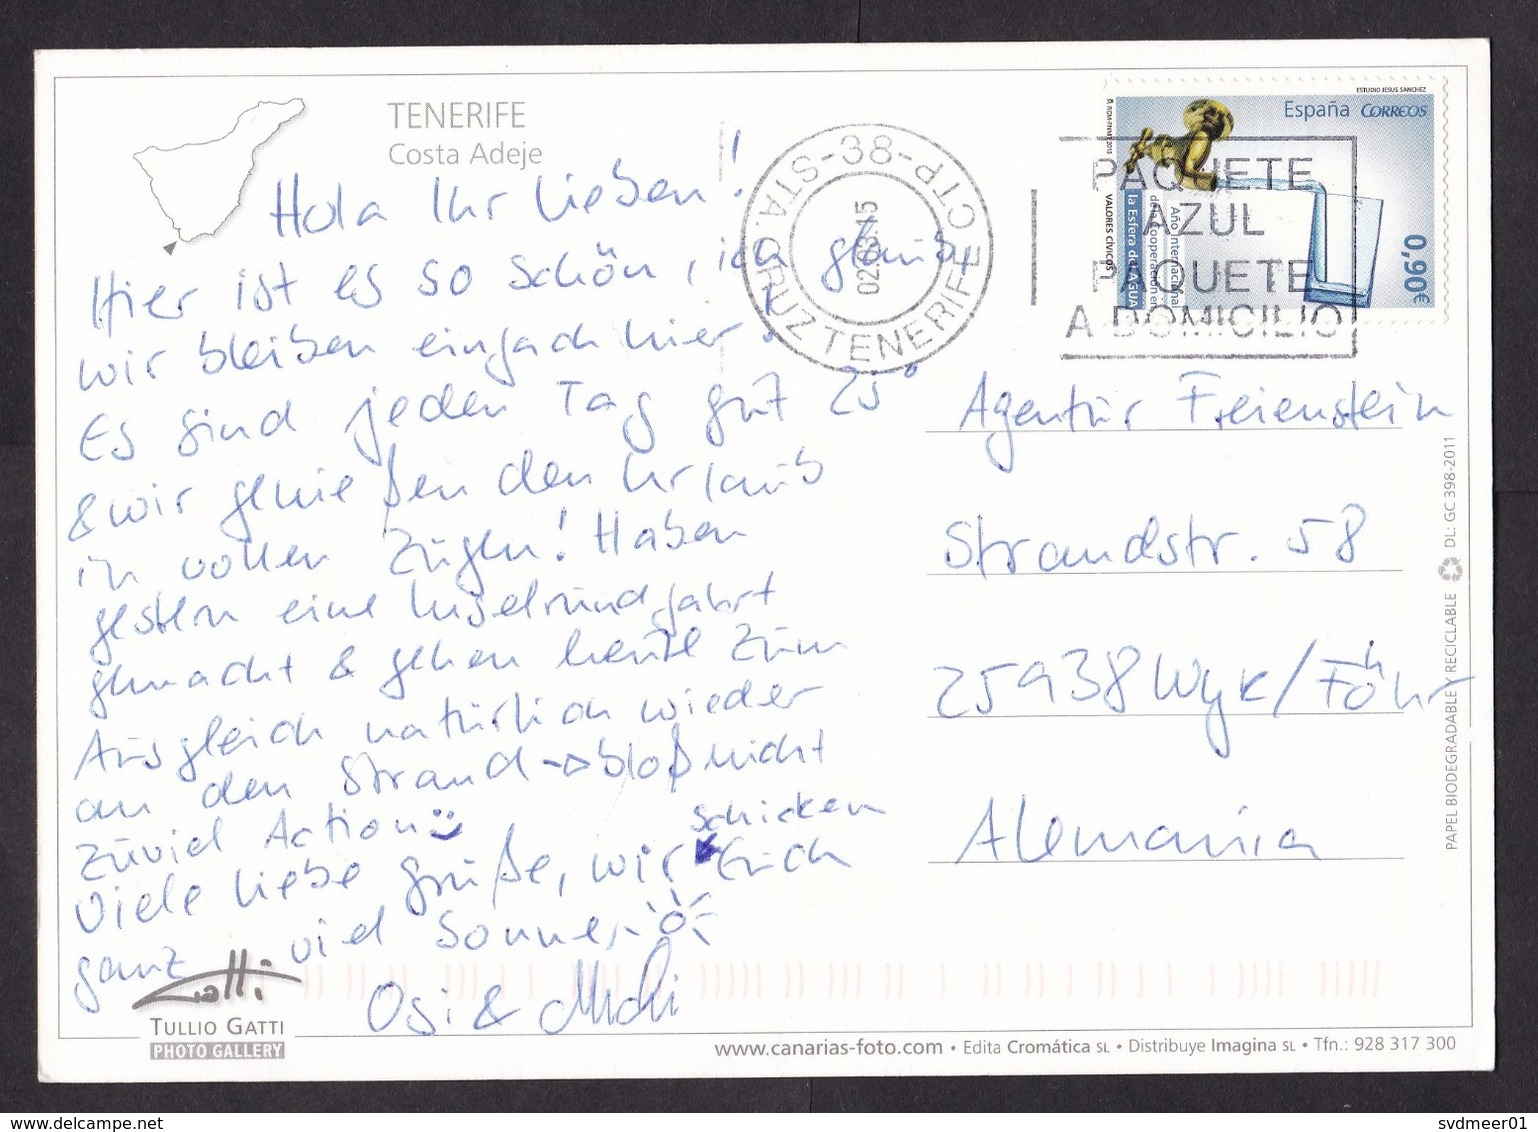 TENERIFE
Costa Adeje
Hola Ihr Lieben!
Hier ist es so schön, ich glaub,
wir bleiben einfach hier!
Es sind jeden Tag gut 25°
& wir genießen den Urlaub
in vollen Zügen! Haben
gestern eine Inselrundfahrt
gemacht & gehen heute zum
Ausgleich natürlich wieder
an den Strand → bloß nicht
zuviel Action
Viele liebe Grüße, wir schicken Euch
ganz viel Sonne,
Osi & Michi
Gatti
TULLIO GATTI
PHOTO GALLERY
STA. CRUZ TENERIFE
38-CTP
PAQUETE
AZUL
PAQUETE
A DOMICILIO
ESTUDIO JESUS SANCHEZ
España CORREOS
0,90€
VALORES CÍVICOS
Año Internacional
de la Cooperación en
la Esfera del AGUA
Agentur Feienstein
Strandstr. 58
25938 Wyk/Föhr
Alemania
PAPEL BIODEGRADABLE Y RECICLABLE DL: GC 398-2011
www.canarias-foto.com • Edita Cromática SL • Distribuye Imagina SL • Tfn.: 928 317 300
svdmeer01